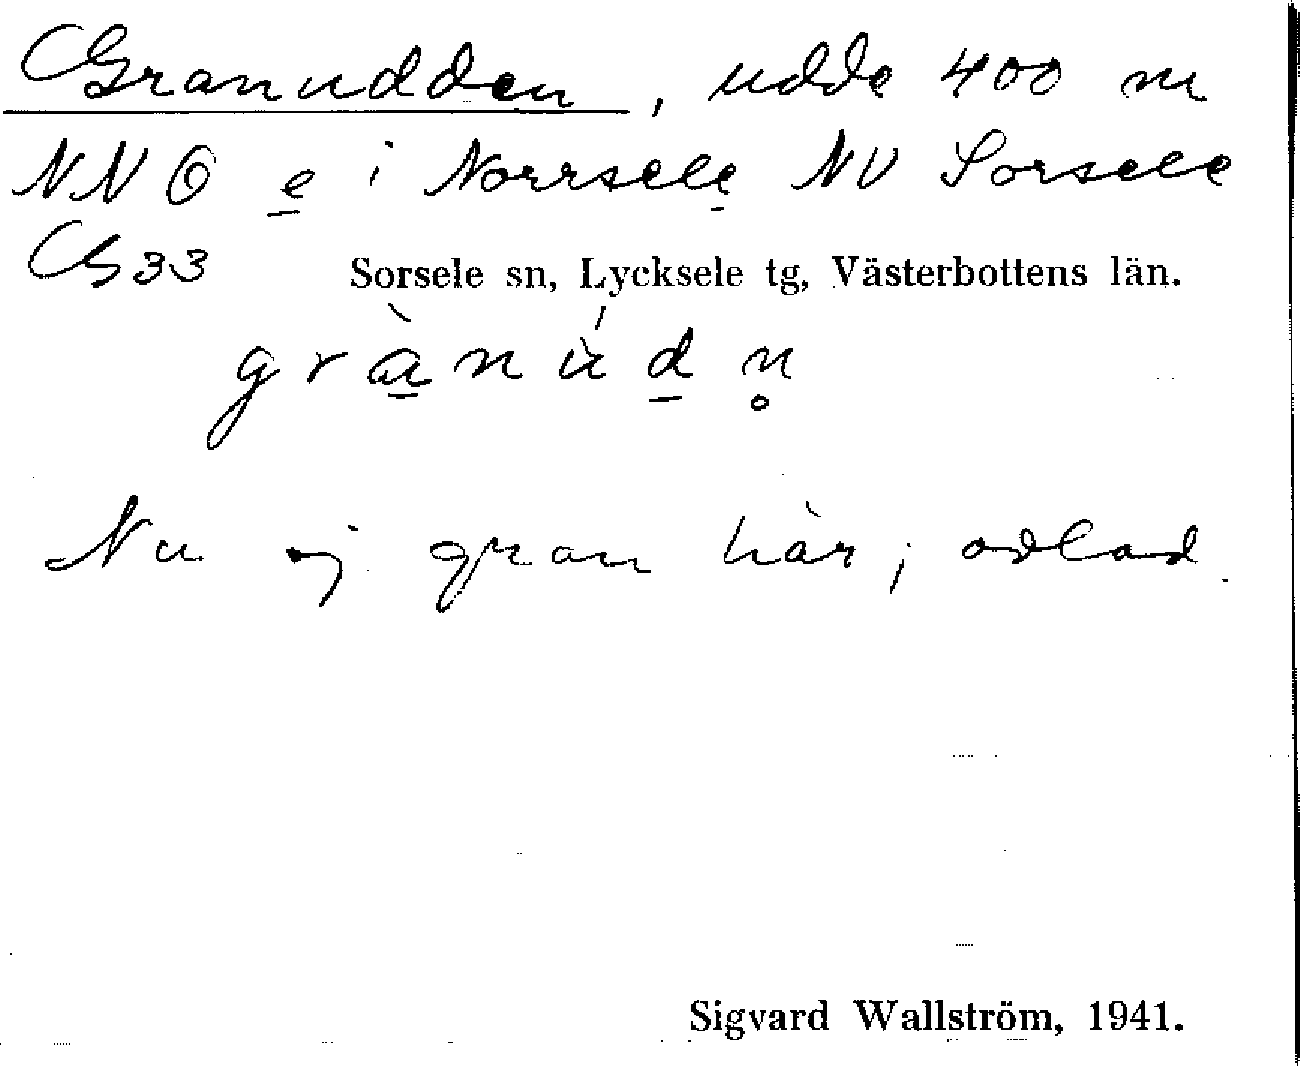 Granudden, udde 400 m
NNO e i Norrsele NV Sorsele
G33 Sorsele sn, Lycksele tg, Västerbottens län.
grànùdn̥
Nu ej gran här; odlad.
Sigvard Wallström, 1941.